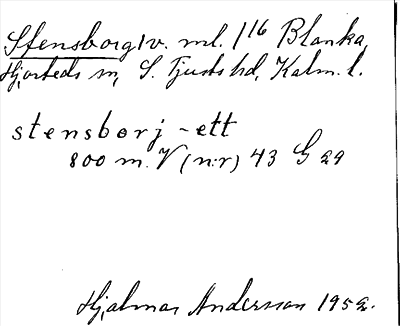 Stensborg 1 v. ml. 1/16 Blanka,
Hjorteds sn, S. Tjusts hd, Kalm. l.
stensborj - ett
800 m. V (n:r) 43 G 29
Hjalmar Andersson 1952.